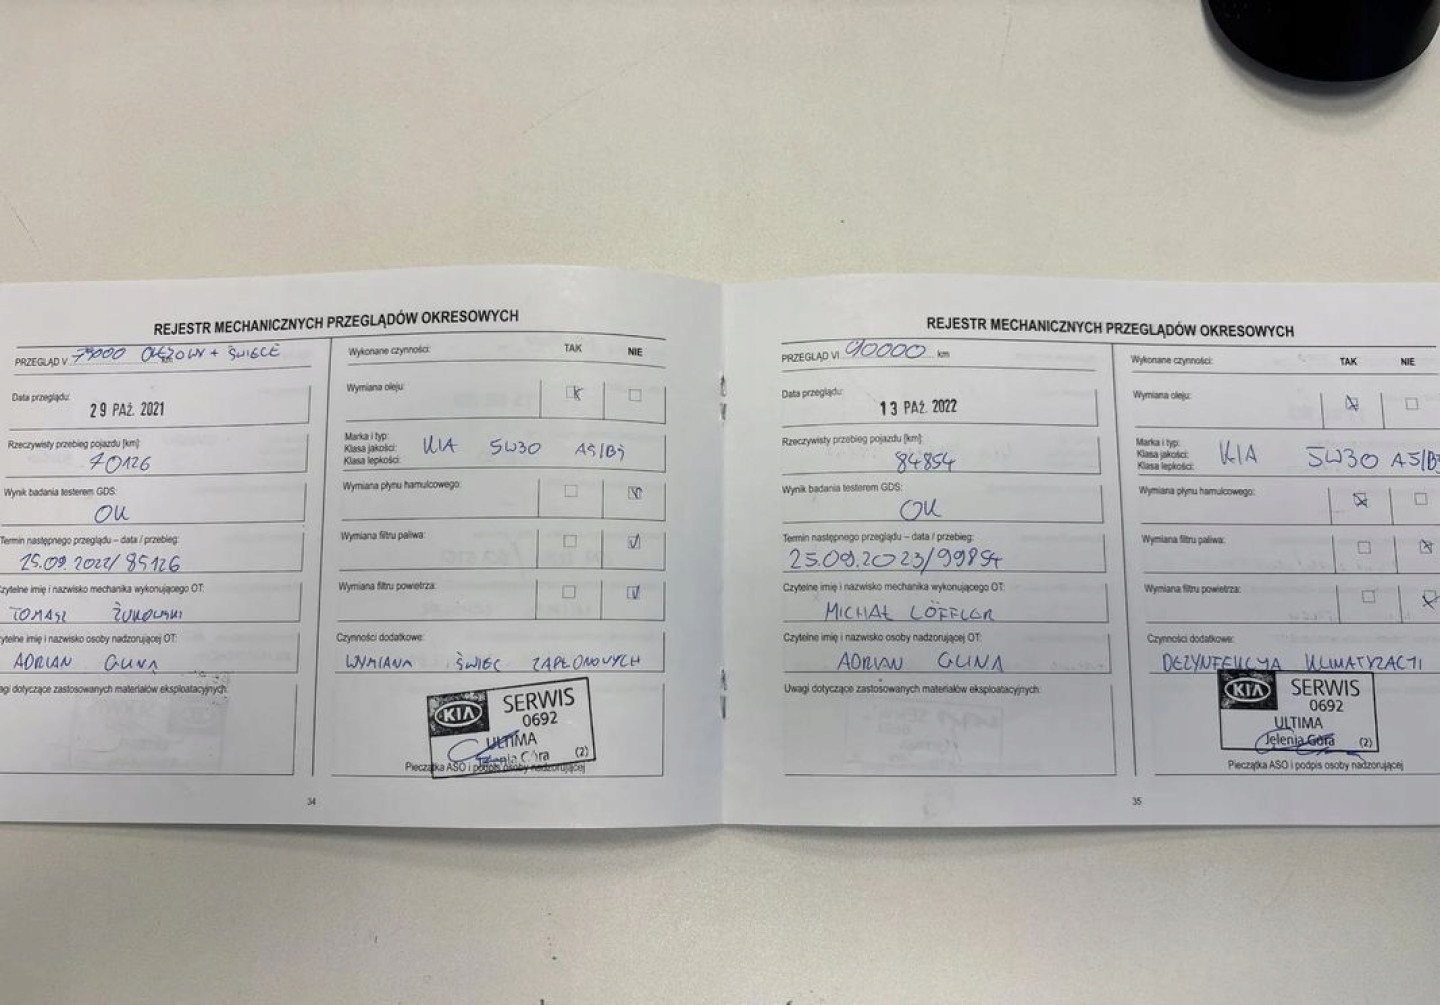 REJESTR MECHANICZNYCH PRZEGLĄDÓW OKRESOWYCH
PRZEGLĄD V 75000 OLEJOWY + ŚWIECE
km
Data przeglądu:
29 PAŹ. 2021
Rzeczywisty przebieg pojazdu [km]:
70126
Wynik badania testerem GDS:
OK
Termin następnego przeglądu – data / przebieg:
25.09.2022/85126
Czytelne imię i nazwisko mechanika wykonującego OT:
TOMASZ ŻUKOWSKI
Czytelne imię i nazwisko osoby nadzorującej OT:
ADRIAN GLINA
Uwagi dotyczące zastosowanych materiałów eksploatacyjnych:
Wykonane czynności: TAK NIE
Wymiana oleju:
Marka i typ:
Klasa jakości:
Klasa lepkości:
KIA 5W30 A5/B5
Wymiana płynu hamulcowego:
Wymiana filtru paliwa:
Wymiana filtru powietrza:
Czynności dodatkowe:
WYMIANA ŚWIEC ZAPŁONOWYCH
KIA SERWIS
0692
ULTIMA
Jelenia Góra (2)
Pieczątka ASO i podpis osoby nadzorującej
34
REJESTR MECHANICZNYCH PRZEGLĄDÓW OKRESOWYCH
PRZEGLĄD VI 90000 km
Data przeglądu:
13 PAŹ. 2022
Rzeczywisty przebieg pojazdu [km]:
84854
Wynik badania testerem GDS:
OK
Termin następnego przeglądu – data / przebieg:
25.09.2023/99854
Czytelne imię i nazwisko mechanika wykonującego OT:
MICHAŁ LÖFFLER
Czytelne imię i nazwisko osoby nadzorującej OT:
ADRIAN GLINA
Uwagi dotyczące zastosowanych materiałów eksploatacyjnych:
Wykonane czynności: TAK NIE
Wymiana oleju:
Marka i typ:
Klasa jakości:
Klasa lepkości:
KIA 5W30 A5/B5
Wymiana płynu hamulcowego:
Wymiana filtru paliwa:
Wymiana filtru powietrza:
Czynności dodatkowe:
DEZYNFEKCJA KLIMATYZACJI
KIA SERWIS
0692
ULTIMA
Jelenia Góra (2)
Pieczątka ASO i podpis osoby nadzorującej
35